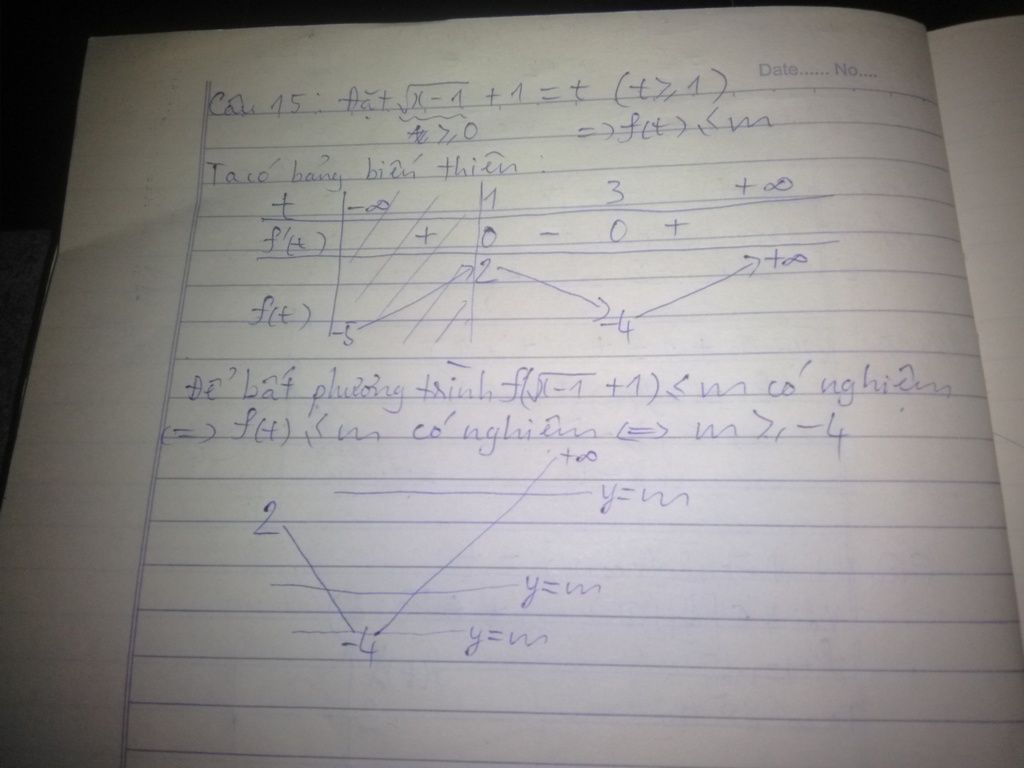 Date...... No....
Câu 15: Đặt √x-1 + 1 = t (t ≥ 1)
≥ 0 => f(t) ≤ m
Ta có bảng biến thiên:
t -∞ 1 3 +∞
f'(t) + 0 - 0 +
2 +∞
f(t) -5 -4
Để bất phương trình f(√x-1 + 1) ≤ m có nghiệm
<=> f(t) ≤ m có nghiệm <=> m ≥ -4
+∞
y = m
2
y = m
-4 y = m